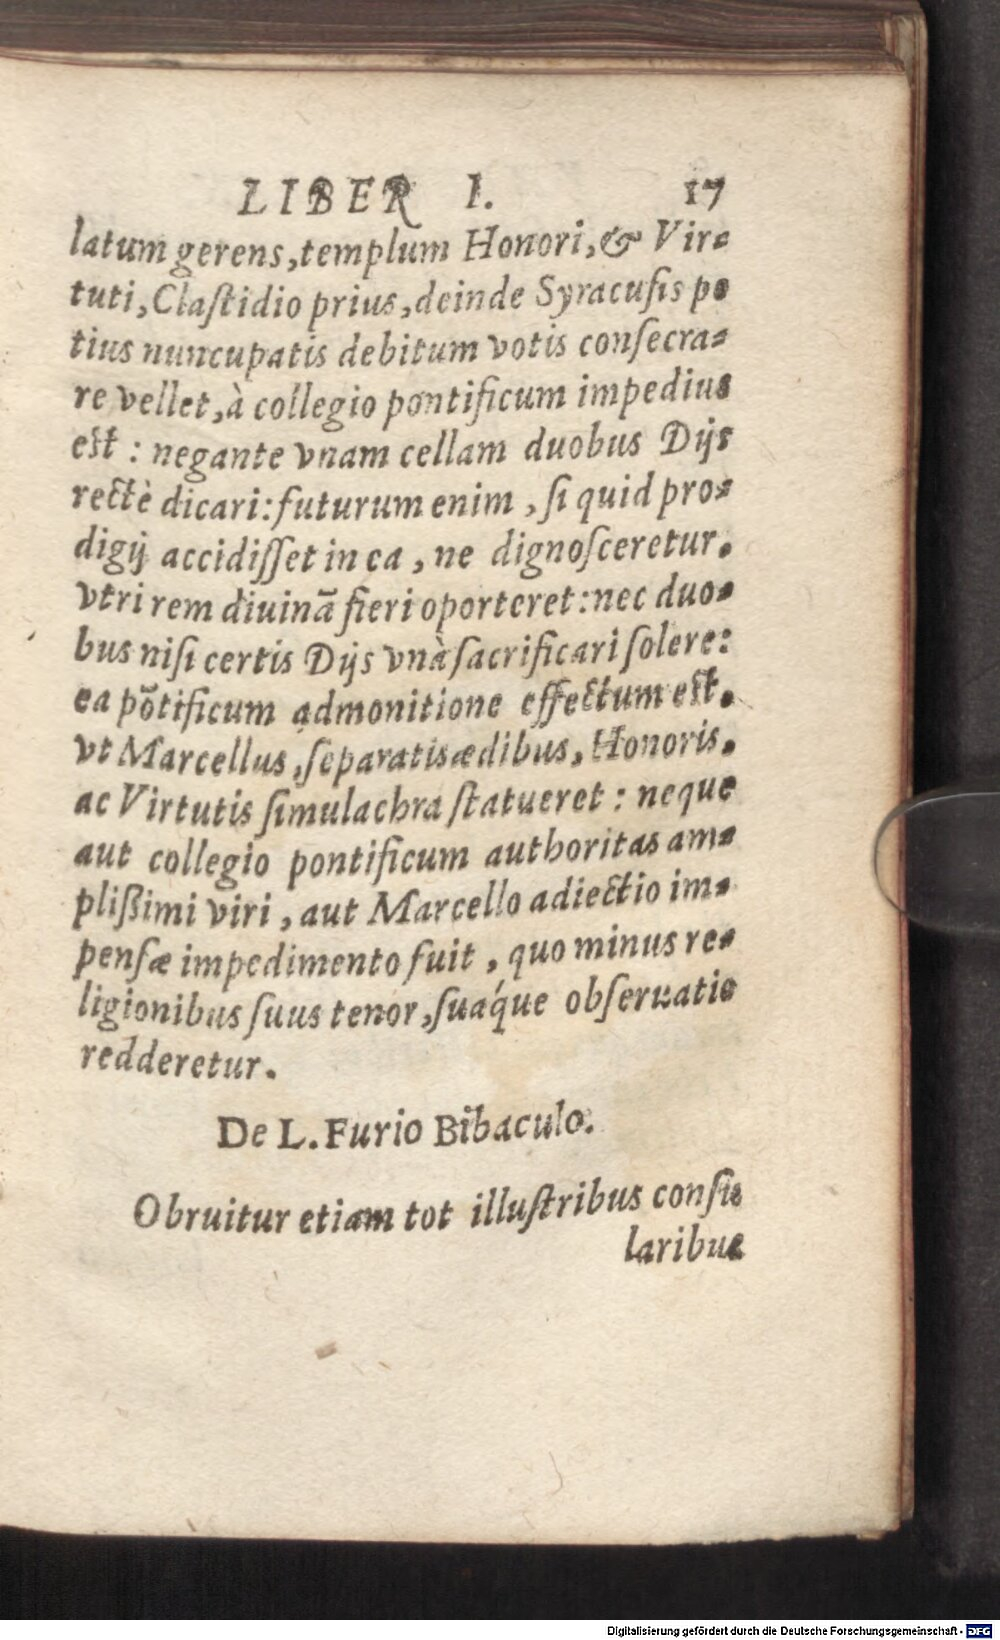 LIBER I. 17
latum gerens, templum Honori, & Vir-
tuti, Clastidio prius, deinde Syracusis po
tius nuncupatis debitum votis consecra-
re vellet, à collegio pontificum impedius
est : negante vnam cellam duobus Dijs
rectè dicari: futurum enim, si quid pro-
digij accidisset in ea, ne dignosceretur.
vtri rem diuinã fieri oporteret: nec duo-
bus nisi certis Dijs vnà sacrificari solere:
ea põtificum admonitione effectum est.
vt Marcellus, separatis ædibus, Honoris.
ac Virtutis simulachra statueret : neque
aut collegio pontificum authoritas am-
plißimi viri, aut Marcello adiectio im-
pensæ impedimento fuit, quo minus re-
ligionibus suus tenor, suáque obseruatio
redderetur.
De L. Furio Bibaculo.
Obruitur etiam tot illustribus consu
laribus
Digitalisierung gefördert durch die Deutsche Forschungsgemeinschaft - DFG